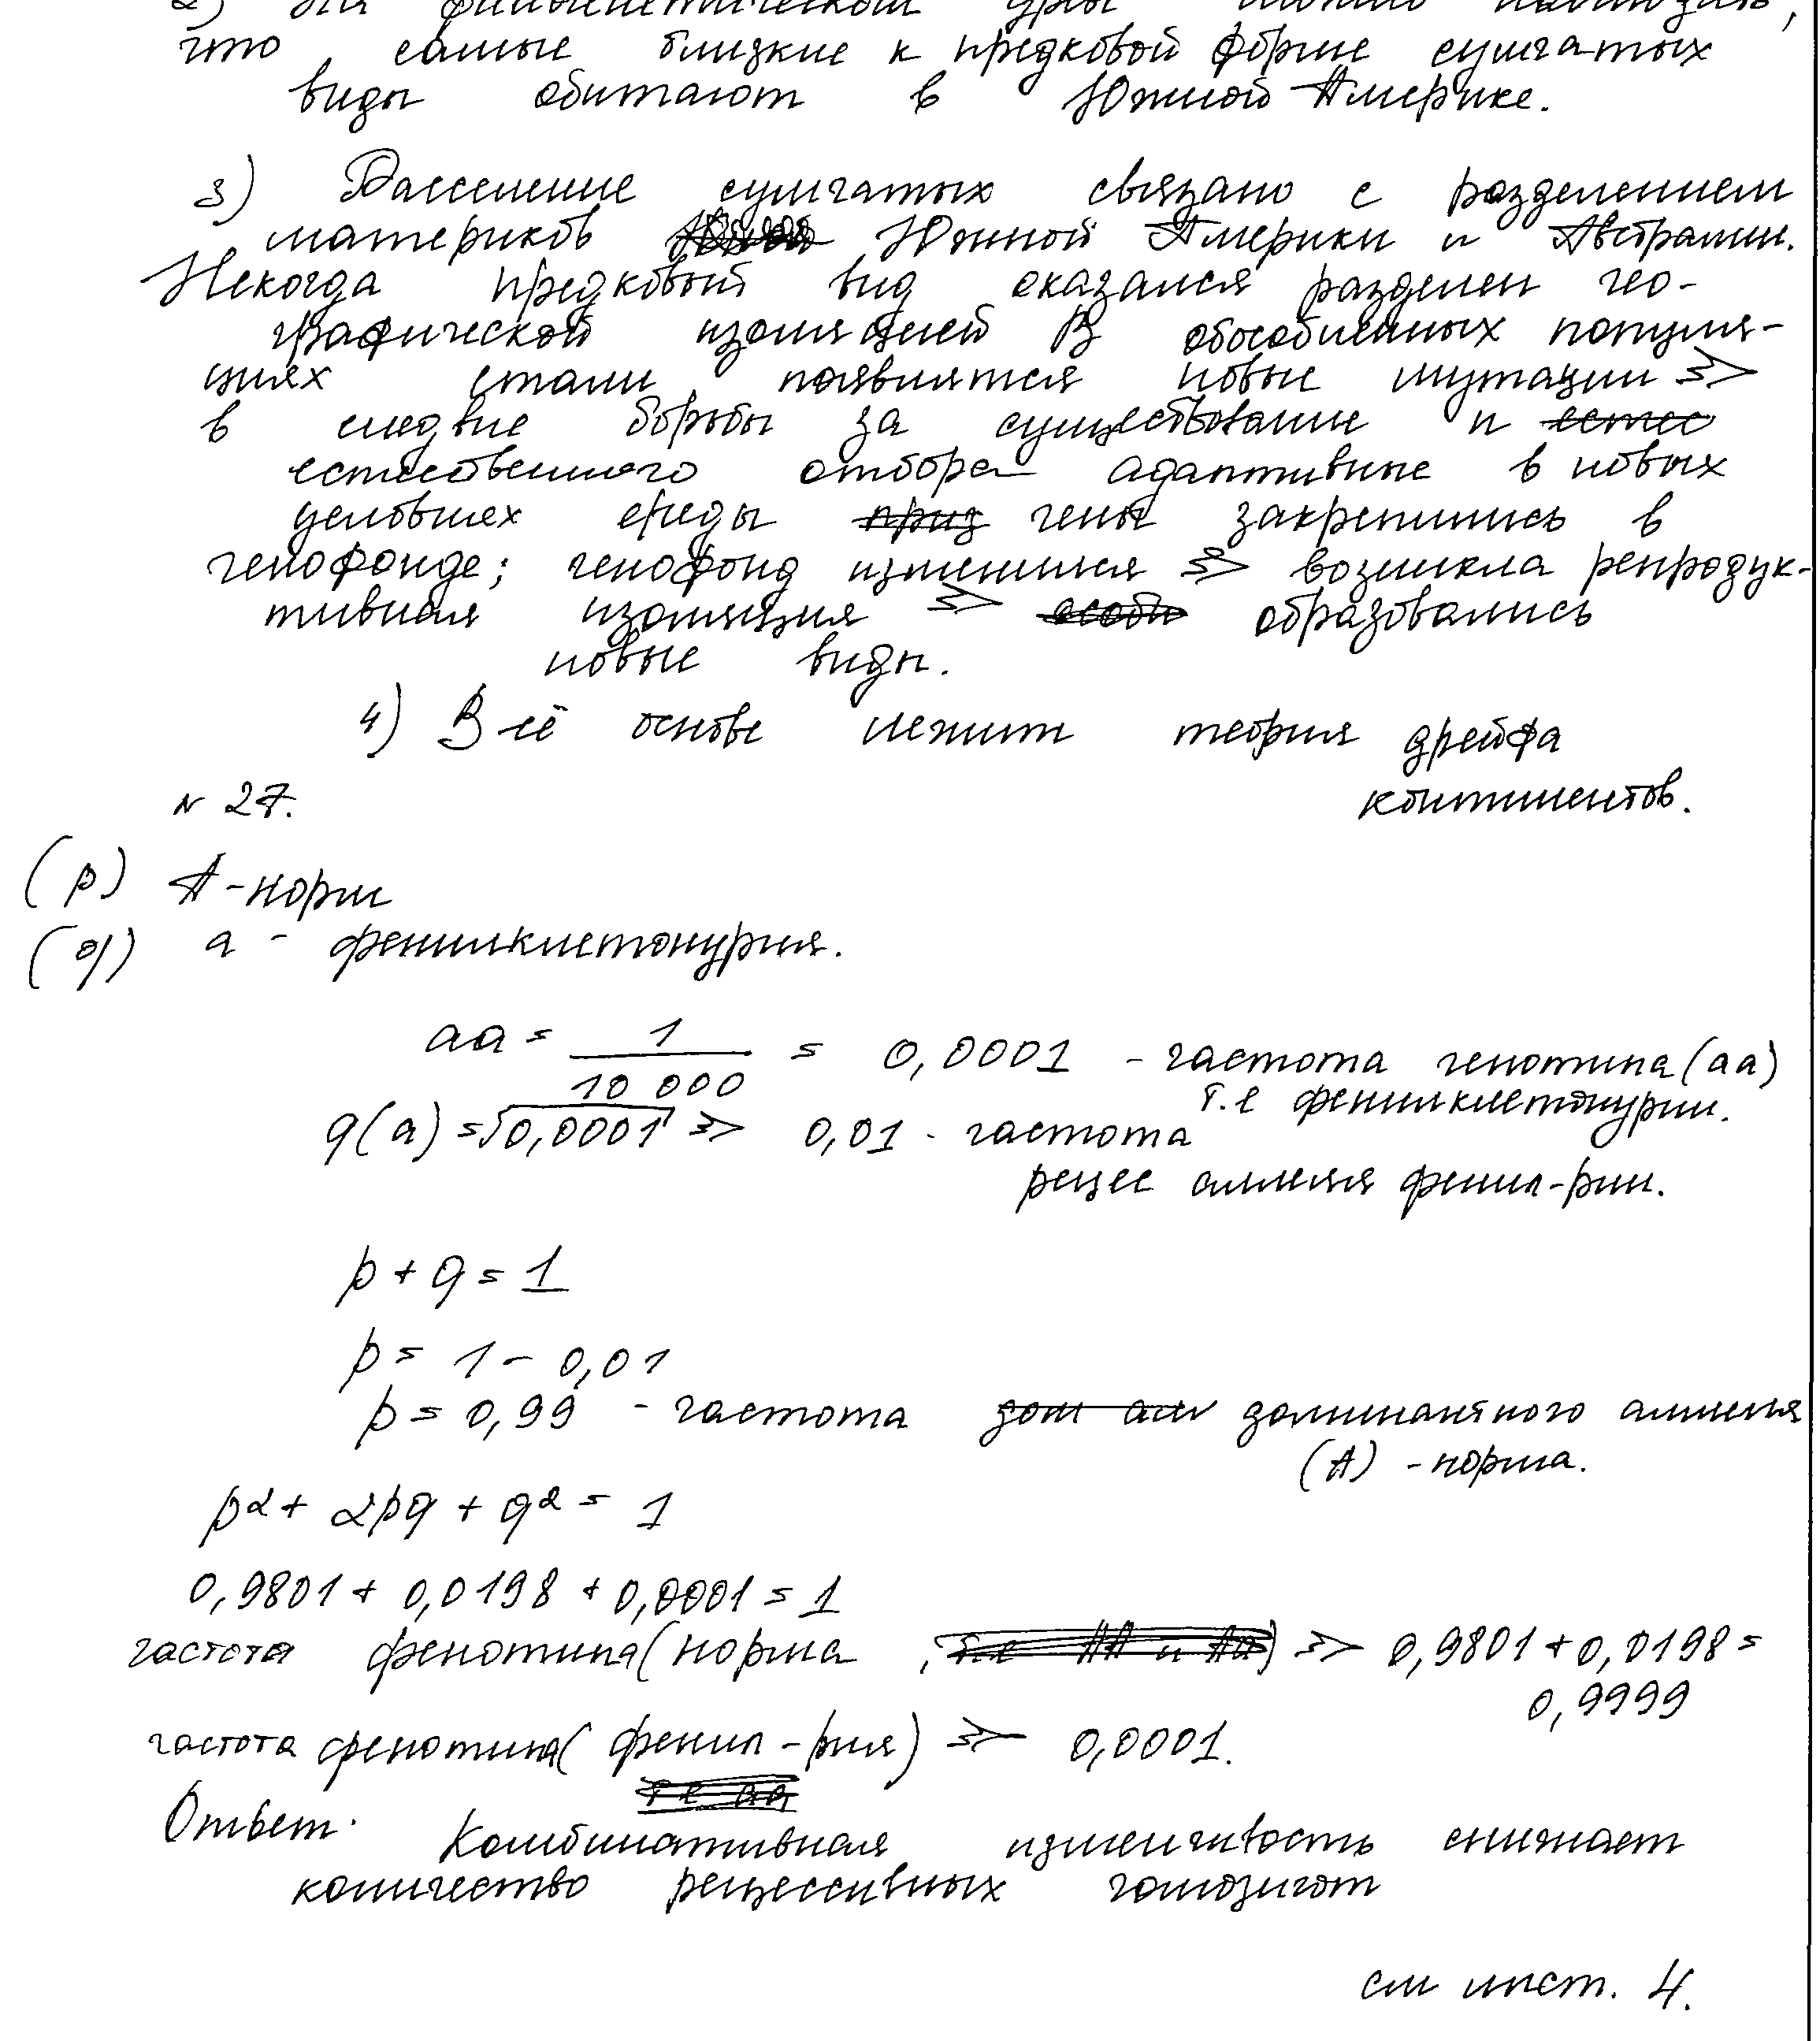 2) На филогенетическом можно наблюдать,
что самые близкие к предковой форме сумчатых
виды обитают в Южной Америке.
3) Расселение сумчатых связано с разделением
материков Южной Америки и Австралии.
Некогда предковый вид оказался разделен гео-
графической изоляцией В обособленных популя-
циях стали появлятся новые мутации =>
в следвие борьбы за существование и естес
естественного отбора адаптивные в новых
условиях среды приз гены закрепились в
генофонде; генофонд изменился => возникла репродук-
тивная изоляция => особи образовались
новые виды.
4) В её основе лежит теория дрейфа
континентов.
N 27.
(p) А - норм
(q) а - фенилкетонурия.
aa = 1/10 000 = 0,0001 - частота генотипа (aa)
т.е фенилкетонурии.
q(a) = √0,0001 => 0,01 - частота
рецес аллеля фенил-рии.
p + q = 1
p = 1 - 0,01
p = 0,99 - частота дом алл доминантного аллеля
(А) - норма.
p² + 2pq + q² = 1
0,9801 + 0,0198 + 0,0001 = 1
частота фенотипа (норма, т.е АА и Аа) => 0,9801 + 0,0198 =
0,9999
частота фенотипа (фенил-рия) => 0,0001.
т е аа
Ответ: Комбинативная изменчивость снижает
количество рецессивных гомозигот
см лист. 4.